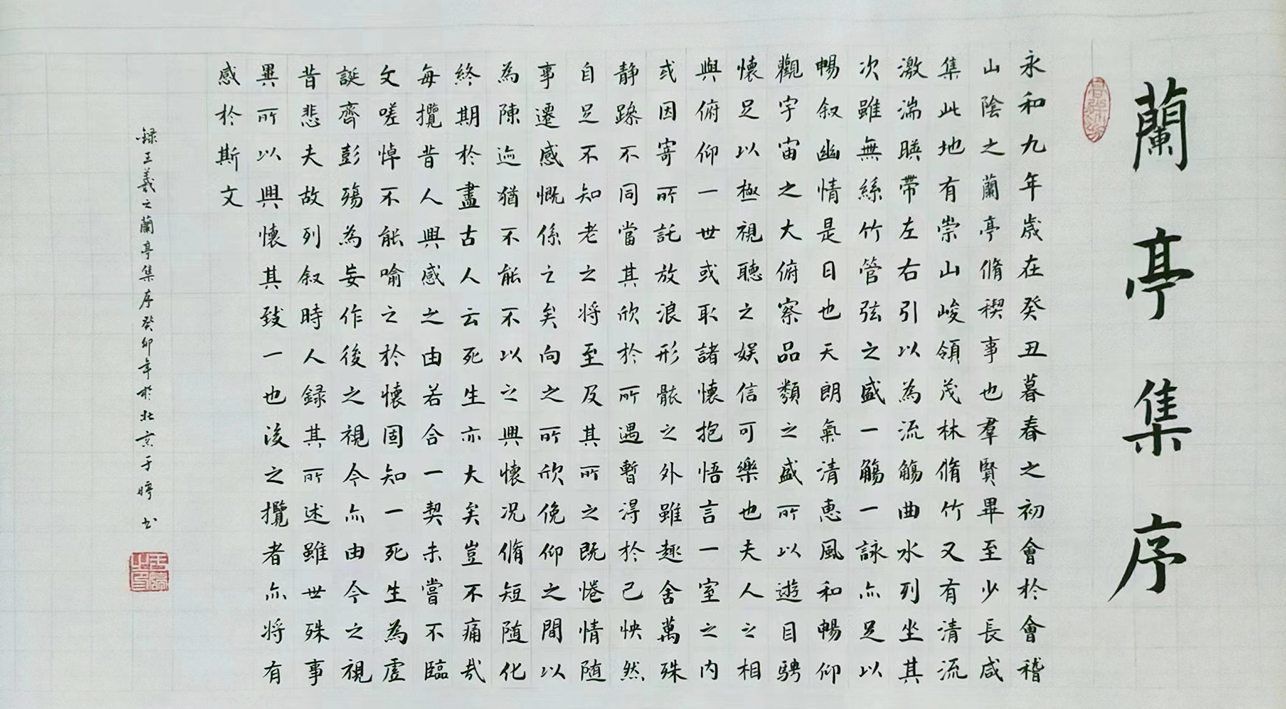 蘭亭集序
永和九年歲在癸丑暮春之初會於會稽
山陰之蘭亭脩稧事也羣賢畢至少長咸
集此地有崇山峻領茂林脩竹又有清流
激湍暎帶左右引以為流觴曲水列坐其
次雖無絲竹管弦之盛一觴一詠亦足以
暢叙幽情是日也天朗氣清惠風和暢仰
觀宇宙之大俯察品類之盛所以遊目騁
懷足以極視聽之娛信可樂也夫人之相
與俯仰一世或取諸懷抱悟言一室之內
或因寄所託放浪形骸之外雖趣舍萬殊
静躁不同當其欣於所遇暫得於己怏然
自足不知老之将至及其所之既惓情随
事遷感慨係之矣向之所欣俛仰之間以
為陳迹猶不能不以之興懷况脩短随化
終期於盡古人云死生亦大矣豈不痛哉
每攬昔人興感之由若合一契未嘗不臨
文嗟悼不能喻之於懷固知一死生為虛
誕齊彭殤為妄作後之視今亦由今之視
昔悲夫故列叙時人録其所述雖世殊事
異所以興懷其致一也後之攬者亦将有
感於斯文
録王羲之蘭亭集序癸卯年於北京于嶗书